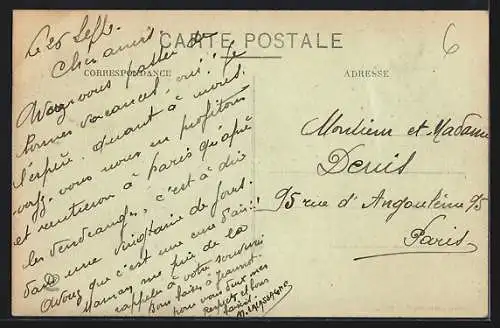 CARTE POSTALE
CORRESPONDANCE
ADRESSE
6
Le 26 Septbre
Chers amis
Avez vous passer de
bonnes vacances, oui! Je
l'espère. quant à nous,
vous nous en profitons
et rentrerons à Paris qu'après
les vendanges, c'est à dire
dans une vingtaine de jours.
Avouez que c'est une cure d'air!!
Maman me prie de la
rappeler à votre souvenir
Bons baisers à
pour vous deux mes
respects et bons
Monsieur et Madame
Denis
95 rue d'Angoulême 95
Paris